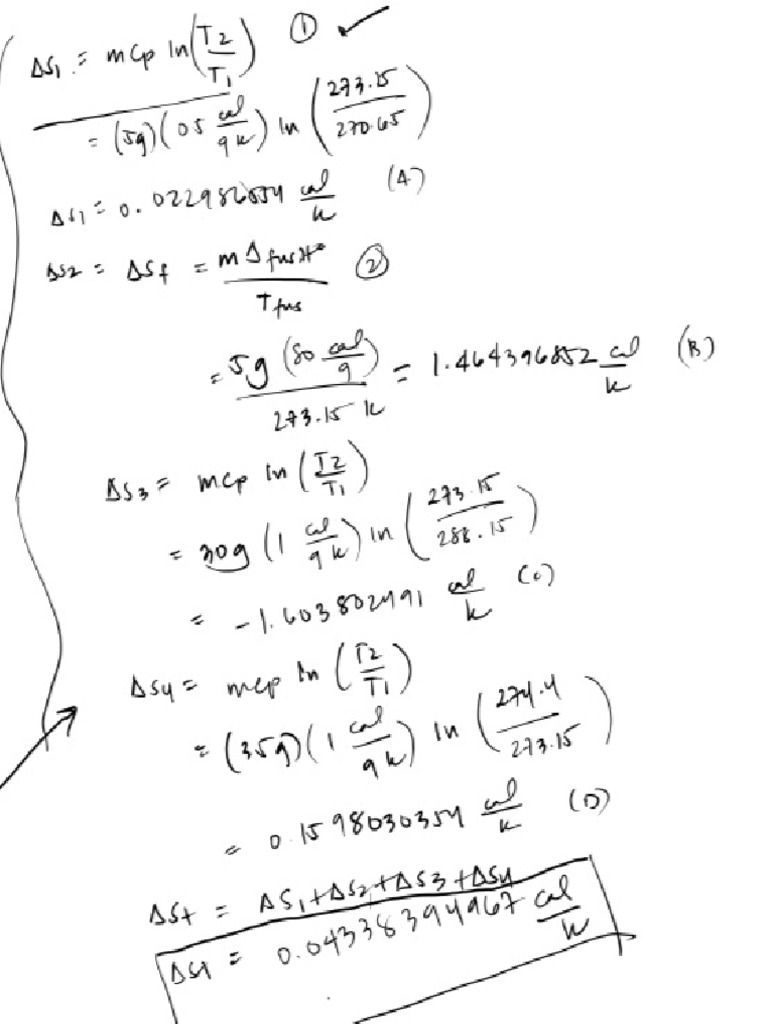 ΔS₁ = mcp ln(T2/T1) ① ✓
= (5g)(05 cal/gk) ln (273.15/270.65)
ΔS1 = 0.022982654 cal/k (A)
ΔS2 = ΔSf = mΔfusH°/Tfus ②
= 5g (80 cal/g)/273.15 k = 1.464396852 cal/k (B)
ΔS3 = mcp ln (T2/T1)
= 30g (1 cal/gk) ln (273.15/288.15)
= -1.603802491 cal/k (C)
ΔS4 = mcp ln (T2/T1)
= (35g)(1 cal/gk) ln (274.4/273.15)
= 0.1598030354 cal/k (D)
ΔSt = ΔS1+ΔS2+ΔS3+ΔS4
ΔSt = 0.04338394967 cal/k